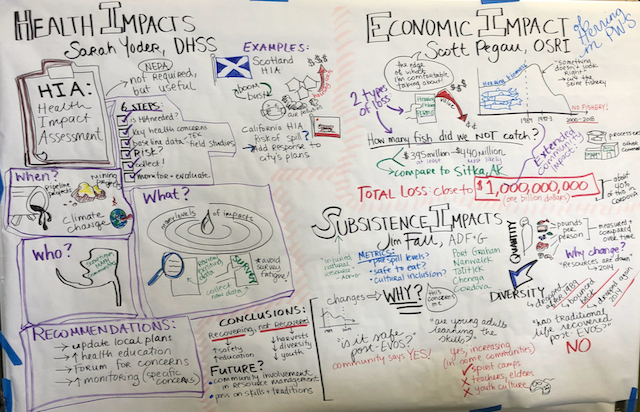 HEALTH IMPACTS
SARAH YODER, DHSS
NEPA
not required,
but useful
HIA:
Health
Impact
Assessment
6 STEPS:
is HIA needed?
key health concerns
baseline data
TEK
field studies
RISK?
collect!
monitor + evaluate
EXAMPLES:
Scotland
HIA
boom
bust
California HIA
risk of spill
add response to
city's plans
When?
Pipeline
projects
Mining
Projects
Climate
change
What?
many levels of impacts
review
existing
data
collect
new data?
SURVEY
*avoid
survey
fatigue!
Who?
RECOMMENDATIONS:
→ update local plans
→ ↑ health education
→ forum for concerns
→ ↑ monitoring (specific
concerns)
CONCLUSIONS:
Recovering, not Recovered
↑ safety
↑ education
↓ harvests
↓ diversity
↓ youth
FUTURE?
community involvement
in resource management
pass on skills + traditions
ECONOMIC IMPACT
of Herring
in PWS
Scott Pegau, OSRI
the edge
of what
I'm comfortable
talking about!
2 types
of loss
Value
"Something
doesn't look
right"
→ cut the seine
fishery
NO FISHERY!
1989
1993
2000-2018
How many fish did we NOT catch?
$395 million
at least
$440 million
most likely
→ compare to Sitka, AK
Extended
community
impacts:
processors
other
about
40%
of this
Cordova
TOTAL LOSS: close to $1,000,000,000
(one billion dollars)
SUBSISTENCE IMPACTS
Jim Fall, ADF+G
"injured
natural
resource"
METRICS:
pre spill levels?
safe to eat?
cultural inclusion?
Port Graham
Nanwalek
Tatitlek
Chenega
Cordova
QUANTITY
pounds
per
person
measured/
compared
over
time
Why change?
"Resources are down"
→ 2014
DIVERSITY
changes → WHY?
this
concerns
me
"is it safe
post-EVOS?"
community says YES!
"are young adults
learning the
skills?"
yes, increasing
(in some communities)
✓ spirit camps
✗ teachers, elders
✗ youth culture
"has traditional
life recovered
post EVOS?"
NO